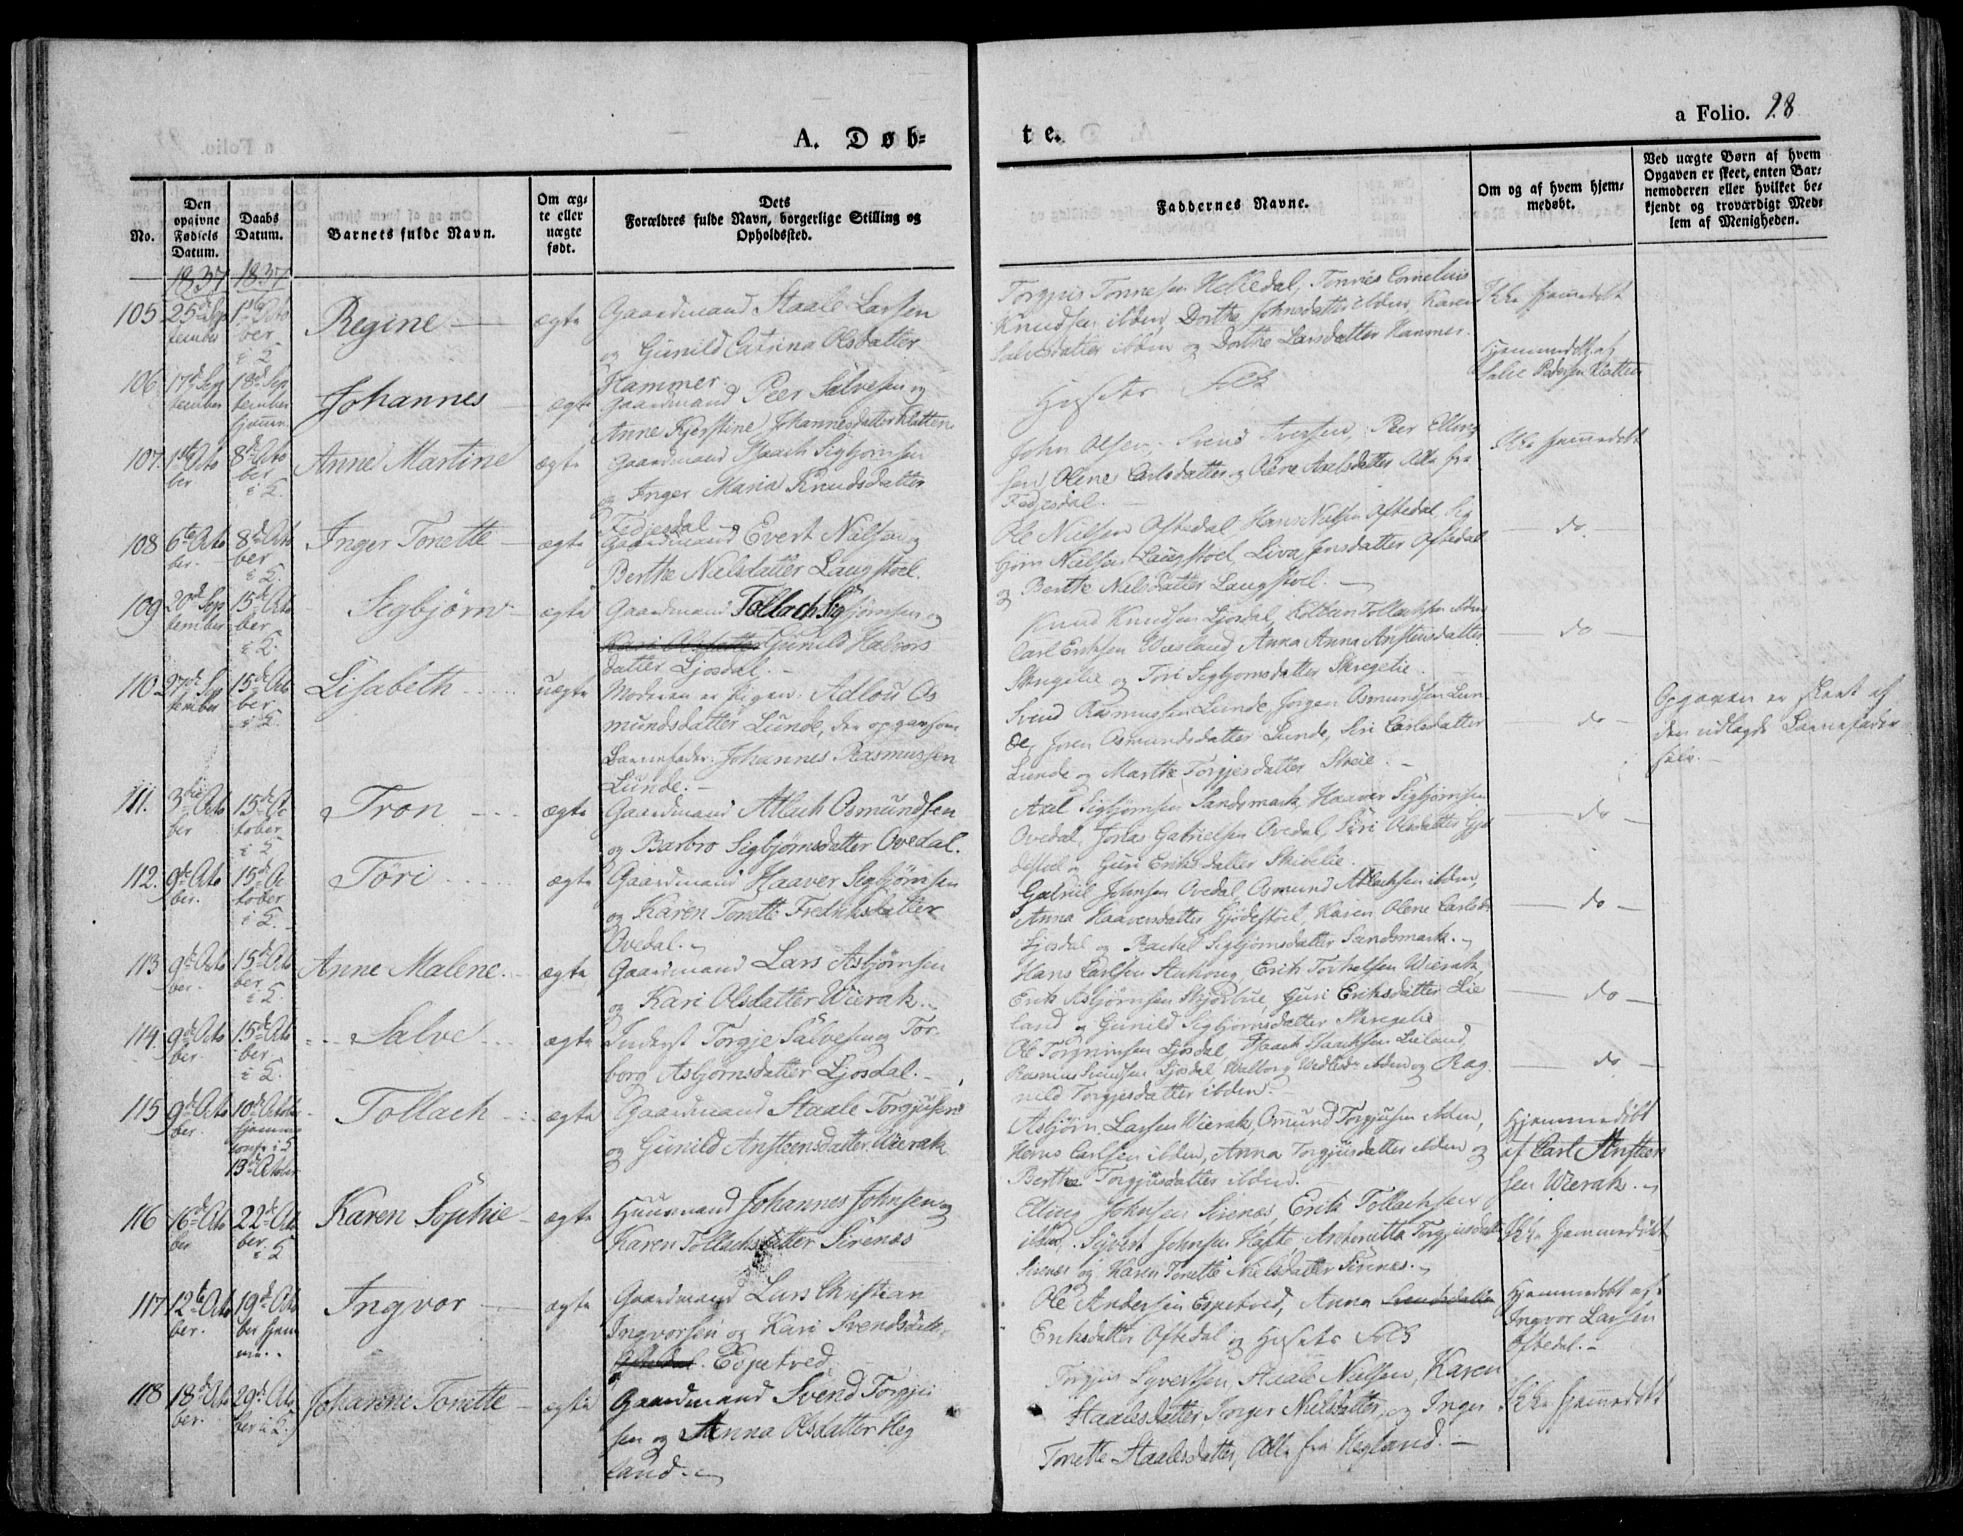 a Folio. 28
A. Døb=
te.
No.
Den opgivne Fødsels Datum.
Daabs Datum.
Barnets fulde Navn.
Om ægte eller uægte født.
Dets Forældres fulde Navn, borgerlige Stilling og Opholdssted.
Faddernes Navne.
Om og af hvem hjemmedøbt.
Ved uægte Børn af hvem Opgaven er skeet, enten Barnemoderen eller hvilket bekjendt og troværdigt Medlem af Menigheden.
1837 1837
105 25de Sep 1ste Octo
tember ber
i K.
Regine
ægte
Gaardmand Staale Larsen
og Gunild Catrina Olsdatter
Hammer.
Torgjus Tønnesen Helledal, Tønnes Cornelius
Knudsen ibden, Dorthe Johnsdatter ibden, Karen
Salvesdatter ibden og Dorthe Larsdatter Hammer.
Ikke hjemmedøbt
106 17de Sep 18de Sep
tember tember
hjemme
Johannes
ægte
Gaardmand Peer Salvesen og
Anne Kjerstine Johannesdatter Klatten
Husets Folk
Hjemmedøbt af
Salve Pedersen Klatten
107 1ste Octo 8de Octo
ber ber
i K.
Anne Martine
ægte
Gaardmand Isaach Sigbjørnsen
og Inger Maria Knudsdatter
Fedjesdal
John Olsen, Svend Iversen, Peer Elling
sen, Olene Carlsdatter og Olene Axelsdatter Alle fra
Fedjesdal.
Ikke hjemmedøbt
108 6te Octo 8de Octo
ber. ber
i K.
Inger Tonette
ægte
Gaardmand Evert Nielsen og
Berthe Nielsdatter Laugstøel.
Ole Nielsen Oftedal, Hans Nielsen Oftedal, Sig
bjørn Nielsen Laugstoel, Liva Jensdatter Oftedal
og Berthe Nielsdatter Laugstoel.
do.
109 20de Sep 15de Octo
tember ber
i K.
Segbjørn
ægte
Gaardmand Tollach Sigbjørnsen og
Kari Olsdatter Gunild Halvors
datter Ljosdal.
Knud Knudsen Ljosdal, Tollachsen ibden
Carl Eriksen Wiesland, Anna Anna Anstensdatter
Skregelie og Tori Segbjornsdatter Skregelie.
do
110 27de Sep 15de Octo
tember ber
i K.
Lisabeth
uægte
Moderen er Pigen: Adlou Os
mundsdatter Lunde, den opgivne
Barnefader: Johannes Rasmussen
Lunde.
Svend Rasmussen Lunde, Jørgen Osmundsen Lun
de, Joren Osmundsdatter Lunde, Siri Carlsdatter
Lunde og Marthe Torgjesdatter Skeie.
do
Opgaven er skeet af
den udlagde Barnefader
selv.
111. 3die Octo 15de Oc
ber tober
i K
Tron
ægte
Gaardmand Atlach Osmundsen
og Barbro Segbjørnsdatter Ovedal.
Axel Sigbjørnsen Sandsmark, Haaver Sigbjørnsen
Ovedal, Jonas Gabrielsen Ovedal, Siri Olsdatter Gjø
destoel og Guri Eriksdatter Skibelie.
do
112. 9de Octo 15de Oc
ber. tober
i K.
Tori
ægte
Gaardmand Haaver Segbjørnsen
og Karen Tonette Fredriksdatter
Ovedal.
Gabriel Jensen Ovedal, Osmund Atlachsen ibden,
Anna Haaversdatter Gjødestoel, Karen Olene Carlsd.
Ljosdal og Rachel Segbjornsdatter Sandsmark.
do
113 9de Octo 15de Octo
ber. ber.
i K.
Anne Malene.
ægte
Gaardmand Lars Asbjørnsen
og Kari Olsdatter Wierak.
Hans Carlsen Stuhoug, Erik Torkelsen Wierak,
Erik Asbjørnsen, Guri Eriksdatter Lie
land og Gunild Sigbjornsdatter Skregelie
do
114. 9de Octo 15de Octo
ber. ber.
i K.
Salve
ægte
Inderst Torgje Salvesen og Tor
borg Asbjørnsdatter Ljosdal.
Ole Torgrimsen Ljosdal, Isaach Isaachsen Lieland,
Rasmus Svendsen Ljosdal, Walborg ibden og Rag
nild Torgjesdatter ibden.
do
115 9de Octo 10de October
ber. hjemme
conf. i K
13de October
Tollach
ægte
Gaardmand Staale Torgjusen
og Gunild Ansteensdatter Wierak
Asbjørn Larsen Wierak, Osmund Torgjusen ibden,
Hans Carlsen ibden, Anna Torgjusdatter ibden og
Berthe Torgjusdatter ibden.
Hjemmedøbt
af Carl Ansteen
sen Wierak.
116 16de Octo 22de Octo
ber ber.
i K
Karen Sophie
ægte
Huusmand Johannes Johnsen og
Karen Tollachsdatter Sirenæs
Elling Johnsen Sirenæs, Erik Tollachsen
ibden, Sivert Johnsen Hafte, Antonetta Torgjusdatter
Sirenæs og Karen Tonette Nielsdatter Sirenæs.
Ikke hjemmedøbt
117 12te Octo 19de Octo
ber. ber hjem
me.
Ingvor
ægte
Gaardmand Lars Christian
Ingvorsen og Kari Svendsdatt.
Oftedal. Espetved
Ole Andersen Espetved, Anna Svendsdatter
Eriksdatter Oftedal og Husets Folk
Hjemmedøbt af
Ingvor Larsen
Oftedal.
118 18de Octo 29de Octo
ber. ber i K.
Johanne Tonette
ægte
Gaardmand Svend Torgju
sen og Anna Olsdatter Heg
land.
Torgjus Syvertsen, Staale Nielsen, Karen
Staalesdatter, Inger Nielsdatter, og Inger
Tonette Staalesdatter, Alle fra Hegland.
Ikke hjemmedøbt